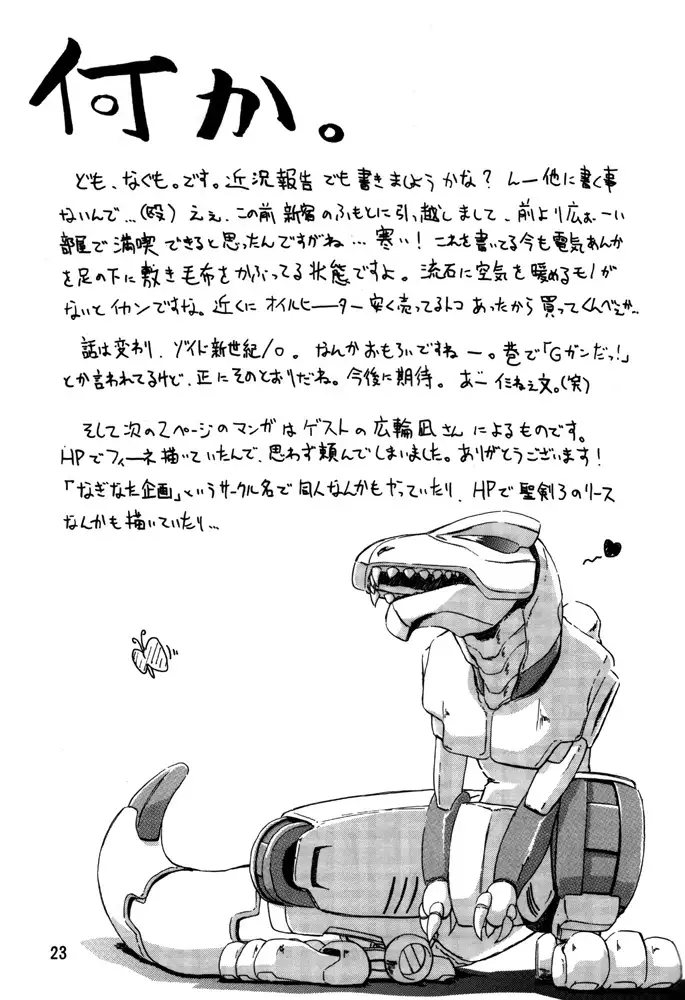 何か。
ども、なぐも。です。近況報告でも書きましようかな？んー他に書く事
ないんで…(殴) えぇ、この前新宿のふもとに引っ越しまして、前より広ぉーい
部屋で満喫できると思ったんですがね…寒い！これを書いてる今も電気あんか
を足の下に敷き毛布をかぶってる状態ですよ。流石に空気を暖めるモノが
ないとイカンですな。近くにオイルヒーター安く売ってるトコあったから買ってくんべぇか…
話は変わり、ゾイド新世紀/0。なんかおもろいですねー。巷で「Gガンだっ！」
とか言われてるけど、正にそのとおりだね。今後に期待。あー仁ねぇ文。(笑)
そして次の2ページのマンガはゲストの広輪凪さんによるものです。
HPでフィーネ描いていたんで、思わず頼んでしまいました。ありがとうございます！
「なぎなた企画」というサークル名で同人なんかもやっていたり、HPで聖剣3のリース
なんかも描いていたり…
23